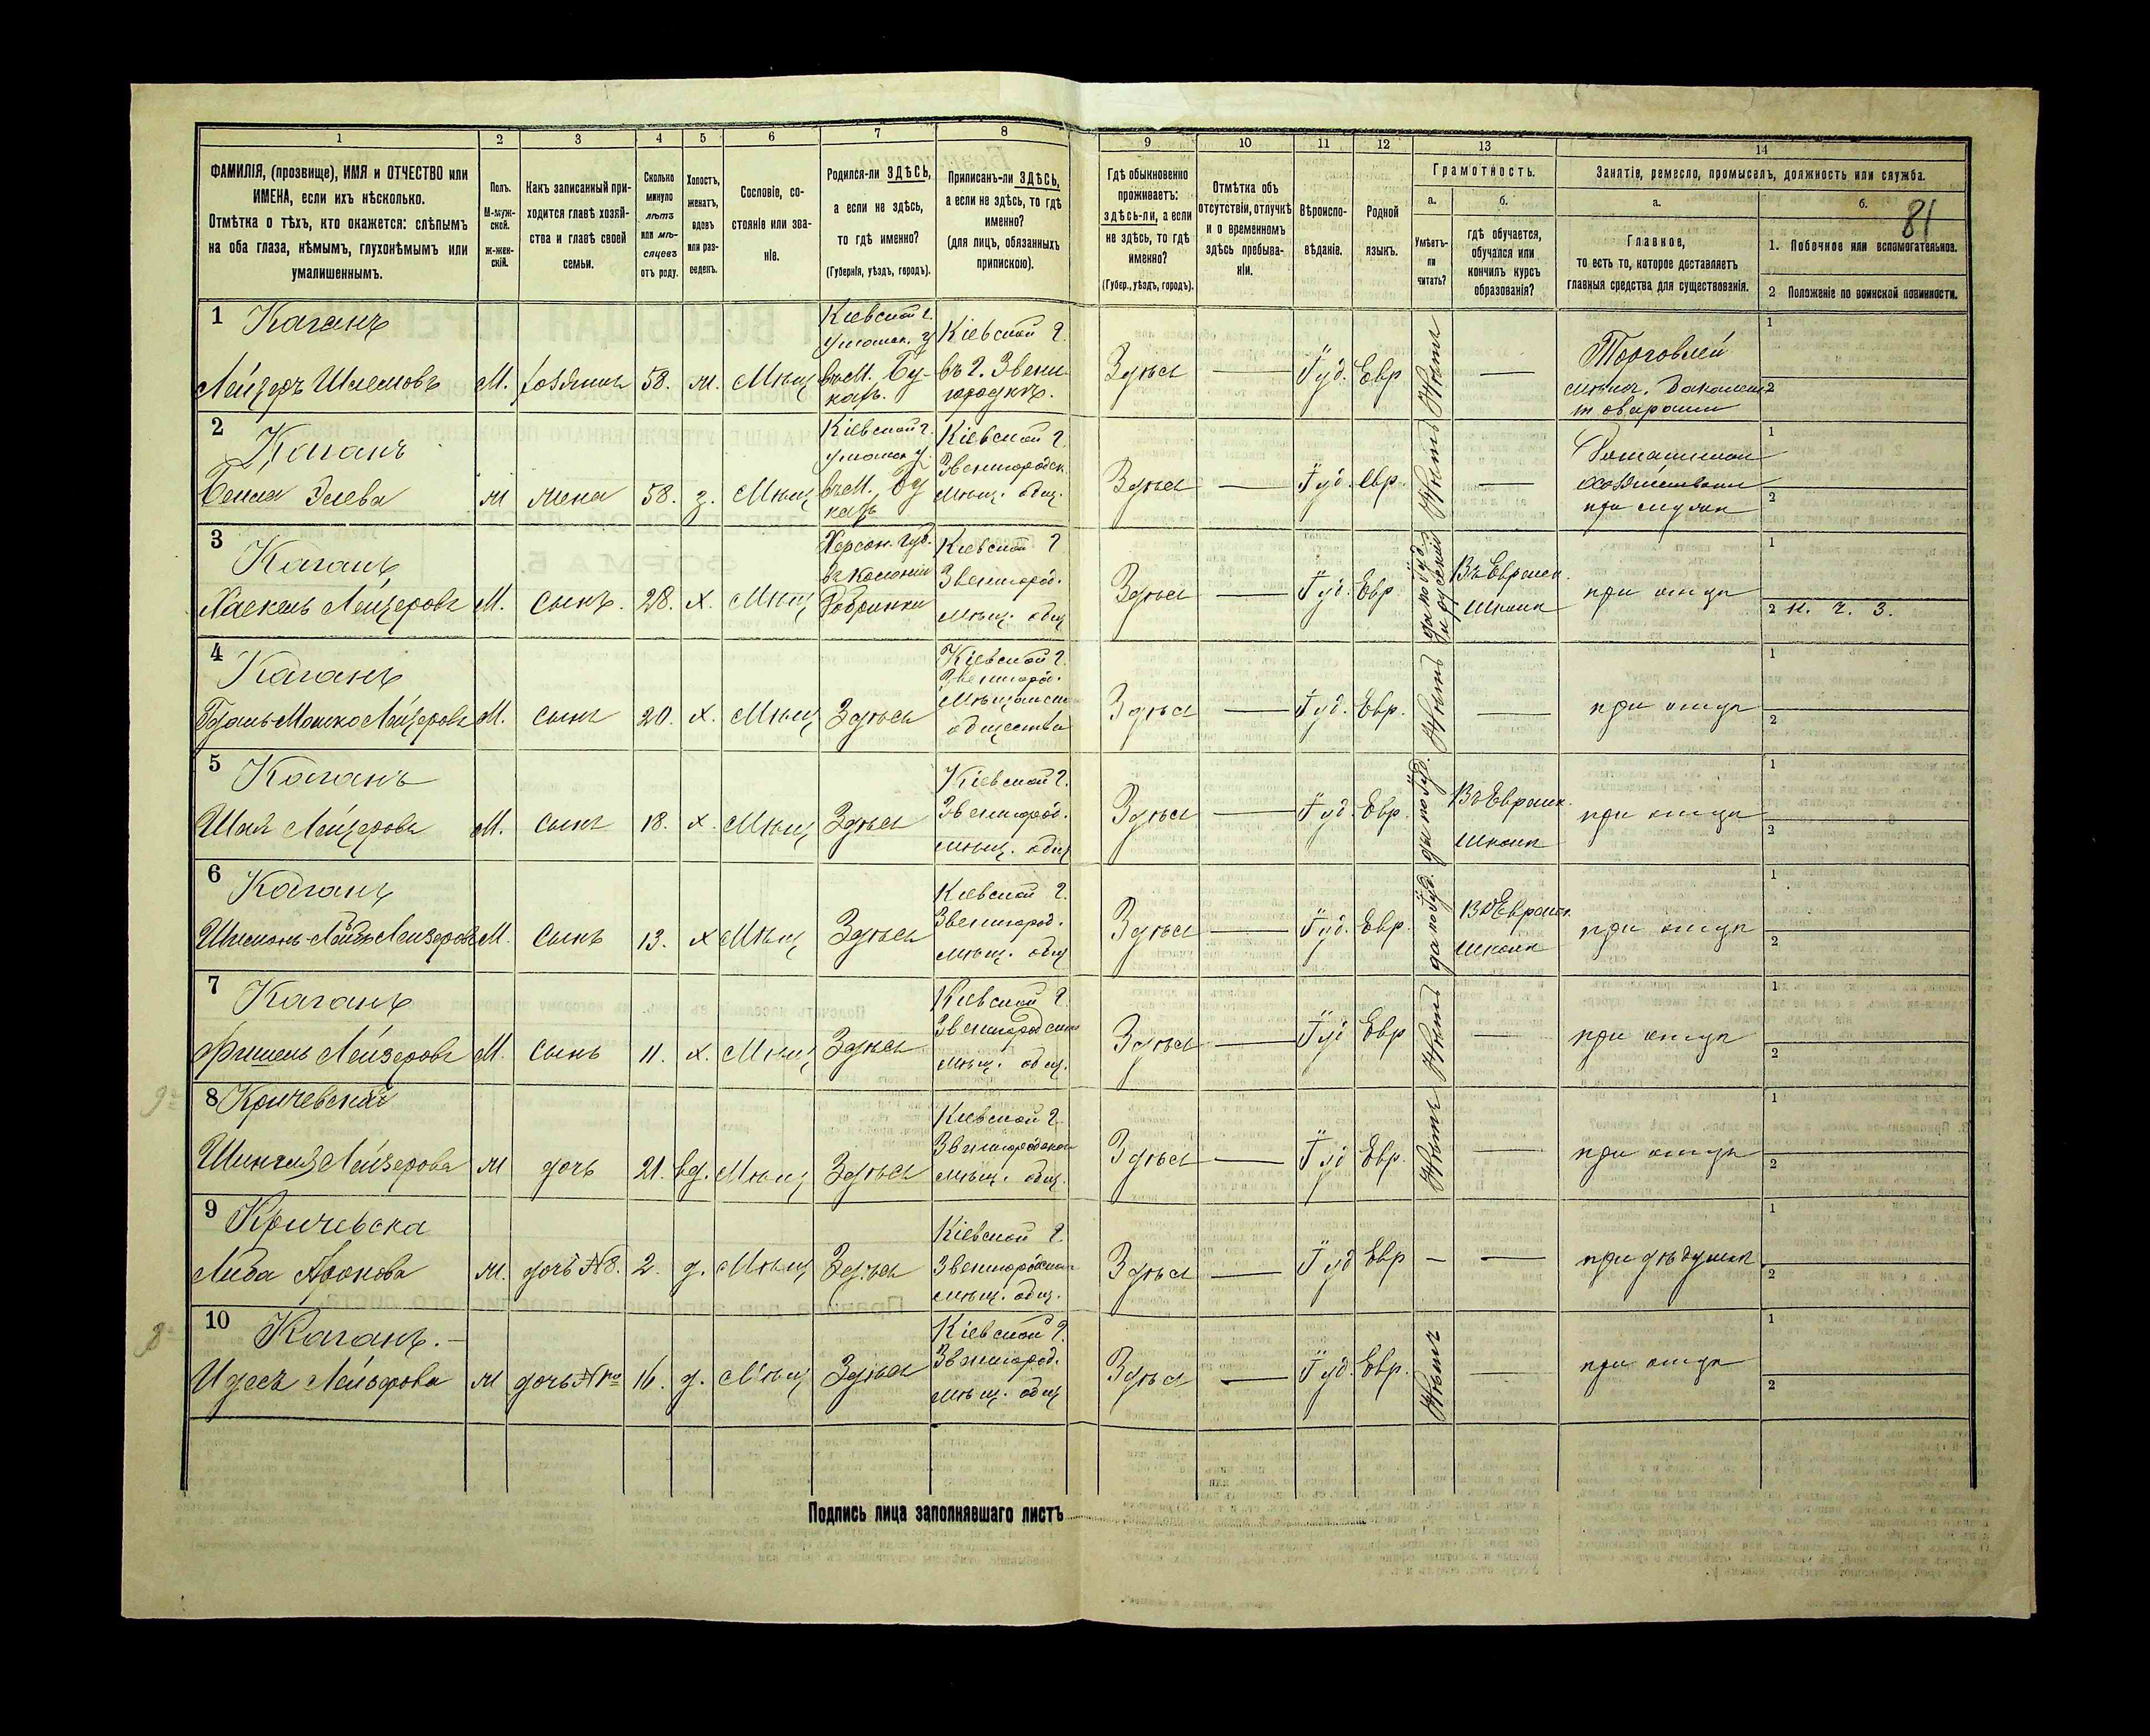 81
1 2 3 4 5 6 7 8 9 10 11 12 13 14
ФАМИЛІЯ, (прозвище), ИМЯ и ОТЧЕСТВО или
ИМЕНА, если ихъ нѣсколько.
Отмѣтка о тѣхъ, кто окажется: слѣпымъ
на оба глаза, нѣмымъ, глухонѣмымъ или
умалишеннымъ.
Полъ.
М-муж-
ской.
ж-жен-
скій.
Какъ записанный при-
ходится главѣ хозяй-
ства и главѣ своей
семьи.
Сколько
минуло
лѣтъ
или мѣ-
сяцевъ
отъ роду.
Холостъ,
женатъ,
вдовъ
или раз-
веденъ.
Сословіе, со-
стояніе или зва-
ніе.
Родился-ли ЗДѢСЬ,
а если не здѣсь,
то гдѣ именно?
(Губернія, уѣздъ, городъ).
Приписанъ-ли ЗДѢСЬ,
а если не здѣсь, то гдѣ
именно?
(для лицъ, обязанныхъ
припискою).
Гдѣ обыкновенно
проживаетъ:
здѣсь-ли, а если
не здѣсь, то гдѣ
именно?
(Губер., уѣздъ, городъ).
Отмѣтка объ
отсутствіи, отлучкѣ
и о временномъ
здѣсь пребыва-
ніи.
Вѣроиспо-
вѣданіе.
Родной
языкъ.
Грамотность.
а.
Умѣетъ-
ли
читать?
б.
гдѣ обучается,
обучался или
кончилъ курсъ
образованія?
Занятіе, ремесло, промыселъ, должность или служба.
а.
Главное,
то есть то, которое доставляетъ
главныя средства для существованія.
б.
1. Побочное или вспомогательное.
2 Положеніе по воинской повинности.
1 Каганъ
Лейзеръ Шлемовъ М. хозяинъ 58. ж. Мѣщ
Кіевской г.
Уманск. у
въ М. Бу-
кахъ.
Кіевской г.
въ г. Звени-
городкѣ.
Здѣсь — Іуд. Евр Нѣтъ —
Торговлей
товарами
1
2
2 Каганъ
Бейла Элева м жена 58. з. Мѣщ
Кіевской г.
Уманск у.
въ М. Бу
кахъ
Кіевской г.
Звенигородск.
Мѣщ. общ.
Здѣсь — Іуд. Евр. Нѣтъ —
Домашнимъ
хозяйствомъ
при мужѣ
1
2
3 Каганъ
Хаскель Лейзеровъ М. сынъ. 28. х. Мѣщ
Херсон. Губ.
въ колоніи
Добринки
Кіевской г
Звенигород.
мѣщ. общ
Здѣсь — Іуд. Евр
да по Іуд.
и русскій
Въ Евройск.
школѣ
при отцѣ
1
2 Н. ч. з.
4 Каганъ
Мошко Лейзеровъ М. сынъ 20. х. Мѣщ Здѣсь
Кіевской г.
Звенигород.
Мѣщанск
общества
Здѣсь — Іуд. Евр. Нѣтъ — при отцѣ
1
2
5 Каганъ
Шая Лейзеровъ М. сынъ 18. х. Мѣщ Здѣсь
Кіевской г.
Звенигород.
мѣщ. общ
Здѣсь — Іуд Евр. да по Іуд.
Въ Евройск.
школѣ
при отцѣ
1
2
6 Каганъ
Шлемонъ-Лейбъ Лейзеровъ М. сынъ 13. х Мѣщ Здѣсь
Кіевской г.
Звенигород.
мѣщ. общ
Здѣсь — Іуд. Евр. да по Іуд.
Въ Евройск.
школѣ
при отцѣ
1
2
7 Каганъ
Фишель Лейзеровъ М. сынъ 11. х. Мѣщ Здѣсь
Кіевской г.
Звенигородск
мѣщ. общ.
Здѣсь — Іуд Евр Нѣтъ — при отцѣ
1
2
8 Кричевскій
Лейзерова м дочь 21. вд. Мѣщ Здѣсь
Кіевской г.
Звенигородской
мѣщ. общ.
Здѣсь — Іуд Евр. Нѣтъ — при отцѣ
1
2
9 Кричевска
Либа Аронова м. дочь №8. 2. д. Мѣщ Здѣсь
Кіевской г.
Звенигородской
мѣщ. общ.
Здѣсь — Іуд Евр — — при дѣдушкѣ
1
2
10 Каганъ. —
Идесъ Лейзерова м дочь №1го 16. д. Мѣщ Здѣсь
Кіевской г.
Звенигород.
мѣщ. общ
Здѣсь — Іуд. Евр. Нѣтъ — при отцѣ
1
2
Подпись лица заполнявшаго листъ